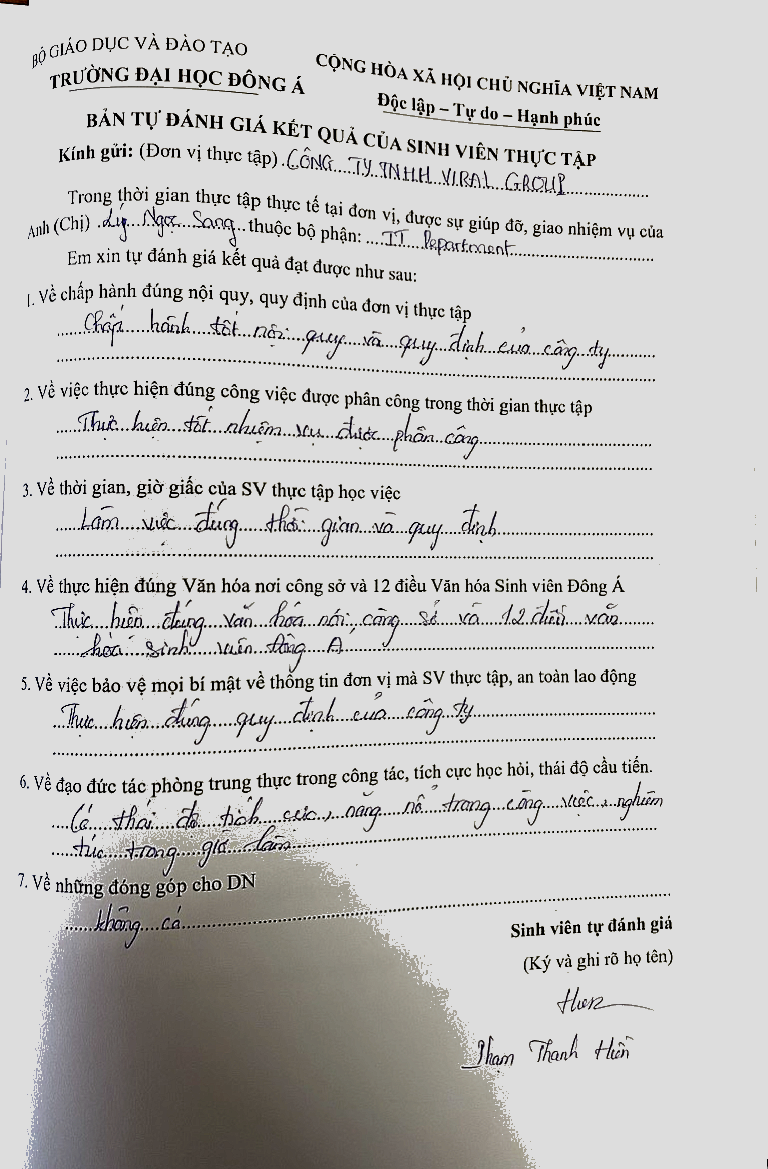 BỘ GIÁO DỤC VÀ ĐÀO TẠO
TRƯỜNG ĐẠI HỌC ĐÔNG Á
CỘNG HÒA XÃ HỘI CHỦ NGHĨA VIỆT NAM
Độc lập – Tự do – Hạnh phúc
BẢN TỰ ĐÁNH GIÁ KẾT QUẢ CỦA SINH VIÊN THỰC TẬP
Kính gửi: (Đơn vị thực tập) CÔNG TY TNHH VIRAL GROUP
Trong thời gian thực tập thực tế tại đơn vị, được sự giúp đỡ, giao nhiệm vụ của
Anh (Chị) Lý Ngọc Sang thuộc bộ phận: IT Department
Em xin tự đánh giá kết quả đạt được như sau:
1. Về chấp hành đúng nội quy, quy định của đơn vị thực tập
Chấp hành tốt nội quy và quy định của công ty
2. Về việc thực hiện đúng công việc được phân công trong thời gian thực tập
Thực hiện tốt nhiệm vụ được phân công
3. Về thời gian, giờ giấc của SV thực tập học việc
Làm việc đúng thời gian và quy định
4. Về thực hiện đúng Văn hóa nơi công sở và 12 điều Văn hóa Sinh viên Đông Á
Thực hiện đúng văn hóa nơi công sở và 12 điều văn
hóa sinh viên Đông Á
5. Về việc bảo vệ mọi bí mật về thông tin đơn vị mà SV thực tập, an toàn lao động
Thực hiện đúng quy định của công ty
6. Về đạo đức tác phòng trung thực trong công tác, tích cực học hỏi, thái độ cầu tiến.
Có thái độ tích cực, năng nổ trong công việc, nghiêm
túc trong giờ làm
7. Về những đóng góp cho DN
không có
Sinh viên tự đánh giá
(Ký và ghi rõ họ tên)
Hiền
Phạm Thanh Hiền